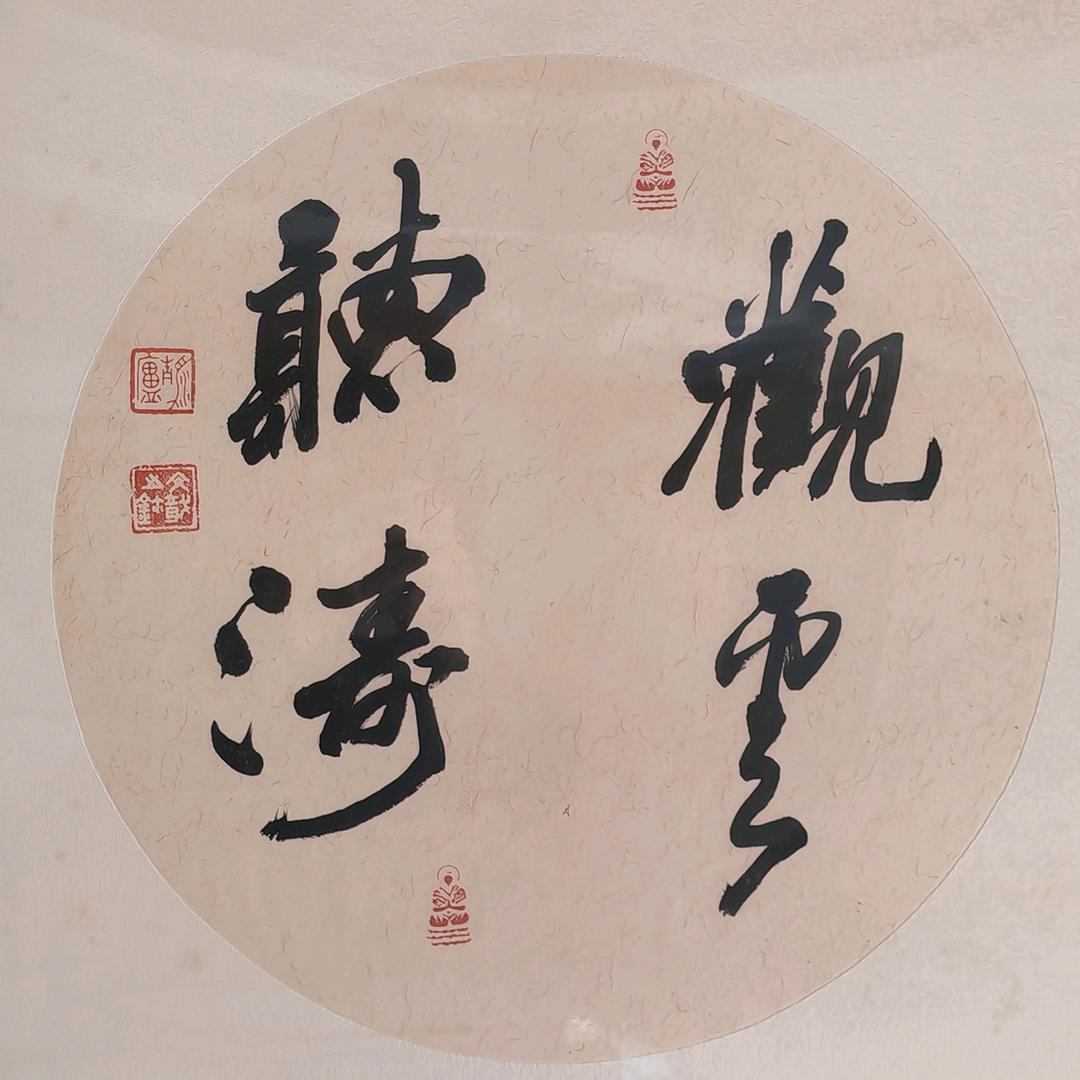 觀雲
聽濤